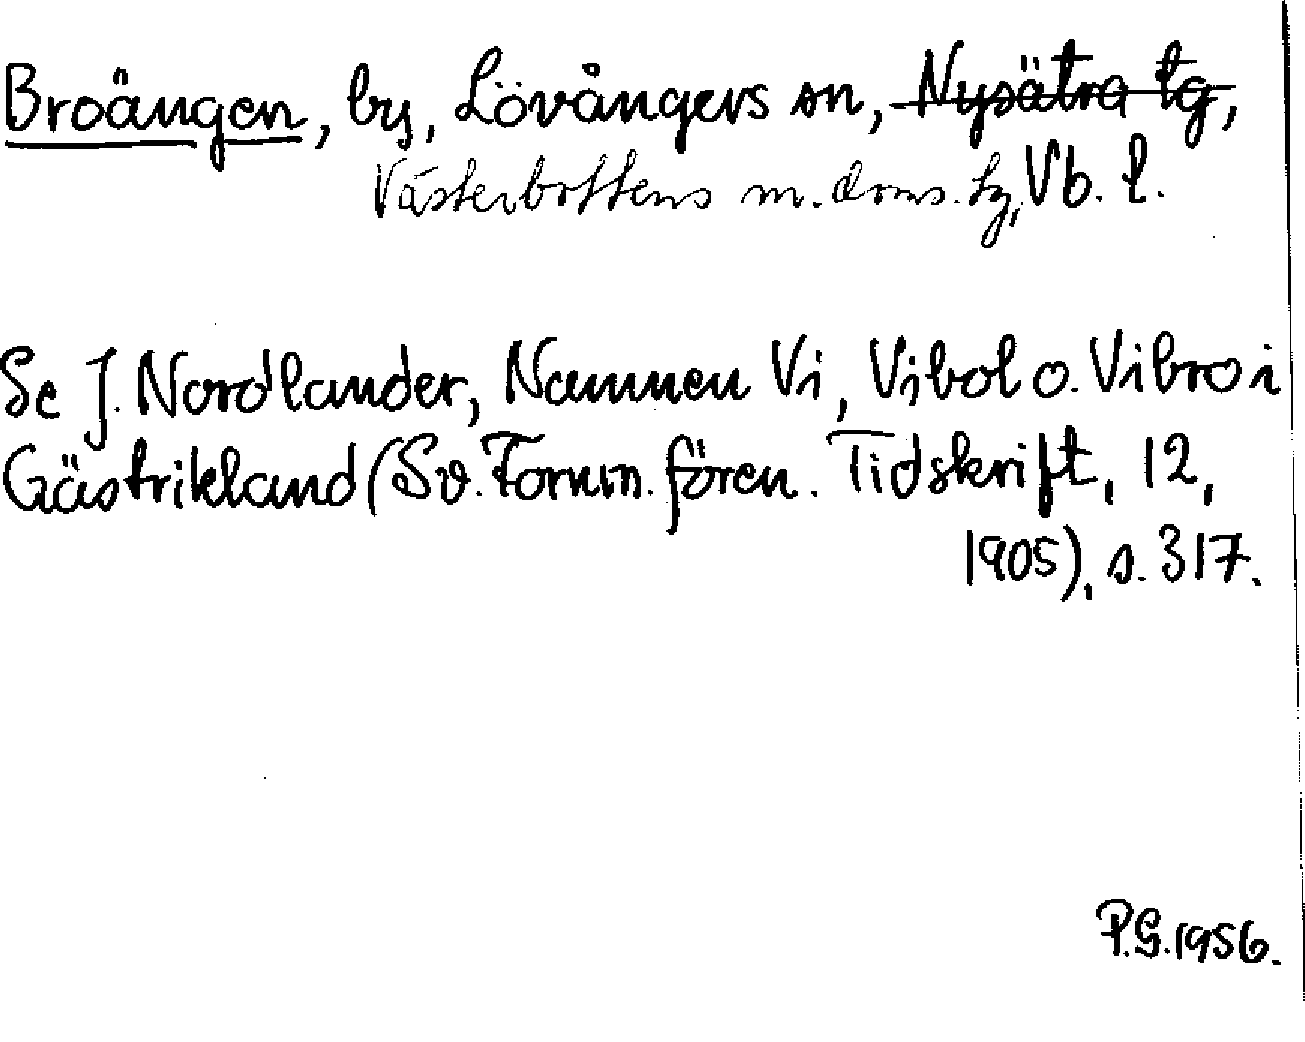 Broängen, by, Lövångers sn, Nysätra tg,
Västerbottens m. doms. tg, Vb. l.
Se J. Nordlander, Namnen Vi, Vibol o. Vibro i
Gästrikland (Sv. Fornm. fören. Tidskrift, 12,
1905), s. 317.
P.G. 1956.